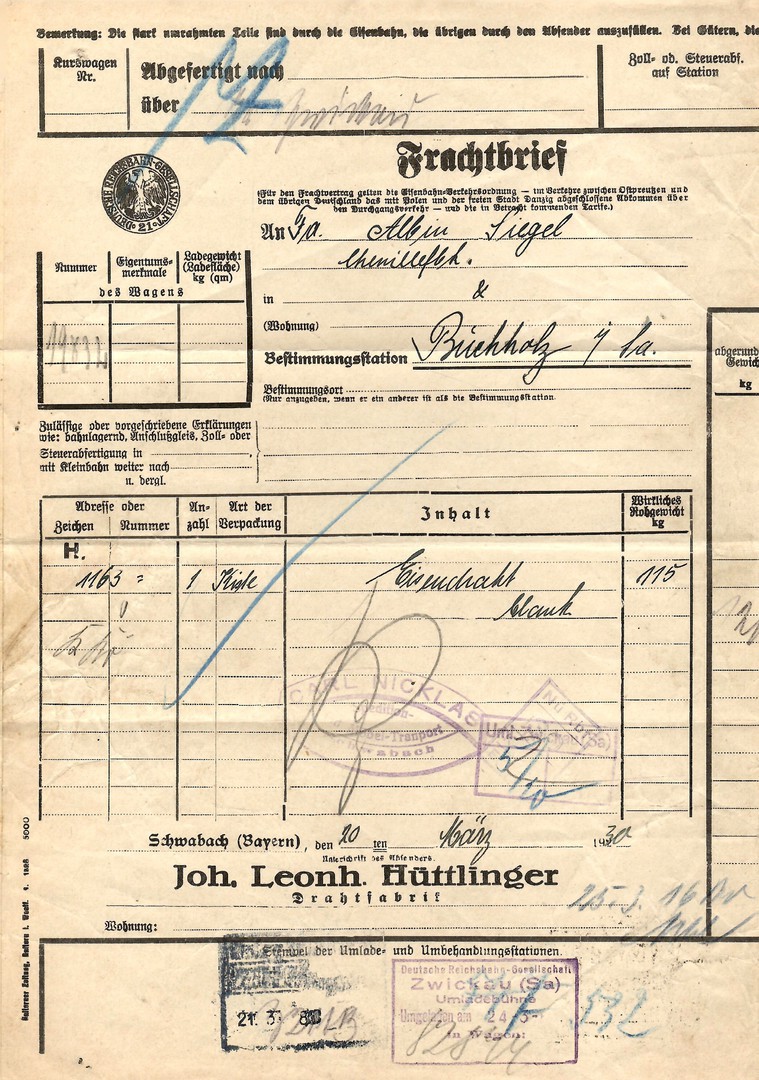 Bemerkung: Die stark umrahmten Teile sind durch die Eisenbahn, die übrigen durch den Absender auszufüllen. Bei Gütern, die
Kurswagen
Nr.
Abgefertigt nach
über Zwickau
Zoll- od. Steuerabf.
auf Station
DEUTSCHE REICHSBAHN-GESELLSCHAFT
21
Frachtbrief
(Für den Frachtvertrag gelten die Eisenbahn-Verkehrsordnung — im Verkehre zwischen Ostpreußen und
dem übrigen Deutschland das mit Polen und der freien Stadt Danzig abgeschlossene Abkommen über
den Durchgangsverkehr — und die in Betracht kommenden Tarife.)
An Fa. Albin Siegel
Chenillefbk.
in &
(Wohnung)
Bestimmungsstation Buchholz i/ Sa.
Bestimmungsort
(Nur anzugeben, wenn er ein anderer ist als die Bestimmungsstation.
Nummer
Eigentums-
merkmale
Ladegewicht
(Ladefläche)
kg (qm)
des Wagens
abgerund
Gewich
kg
Zulässige oder vorgeschriebene Erklärungen
wie: bahnlagernd, Anschlußgleis, Zoll- oder
Steuerabfertigung in
mit Kleinbahn weiter nach
u. dergl.
Adresse oder
Zeichen Nummer
An-
zahl
Art der
Verpackung
Inhalt
Wirkliches
Rohgewicht
kg
H.
1163 = 1 Kiste Eisendraht 115
blank
CARL NICKLAS
Nürnberg
Uml. Zwickau (Sa)
5/10
Schwabach (Bayern), den 20 ten März 1930
Unterschrift des Absenders.
Joh. Leonh. Hüttlinger
Drahtfabrik
25-3. 16
Wohnung:
Stempel der Umlade- und Umbehandlungsstationen.
21. 3.
Deutsche Reichsbahn-Gesellschaft
Zwickau (Sa)
Umladebühne
Umgeladen am 24-3-
in Wagen:
532